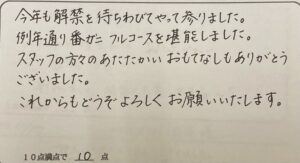 今年も解禁を待ちわびてやって参りました。
例年通り番ガニフルコースを堪能しました。
スタッフの方々のあたたかいおもてなしもありがとう
ございました。
これからもどうぞよろしくお願いいたします。
10点満点で 10 点